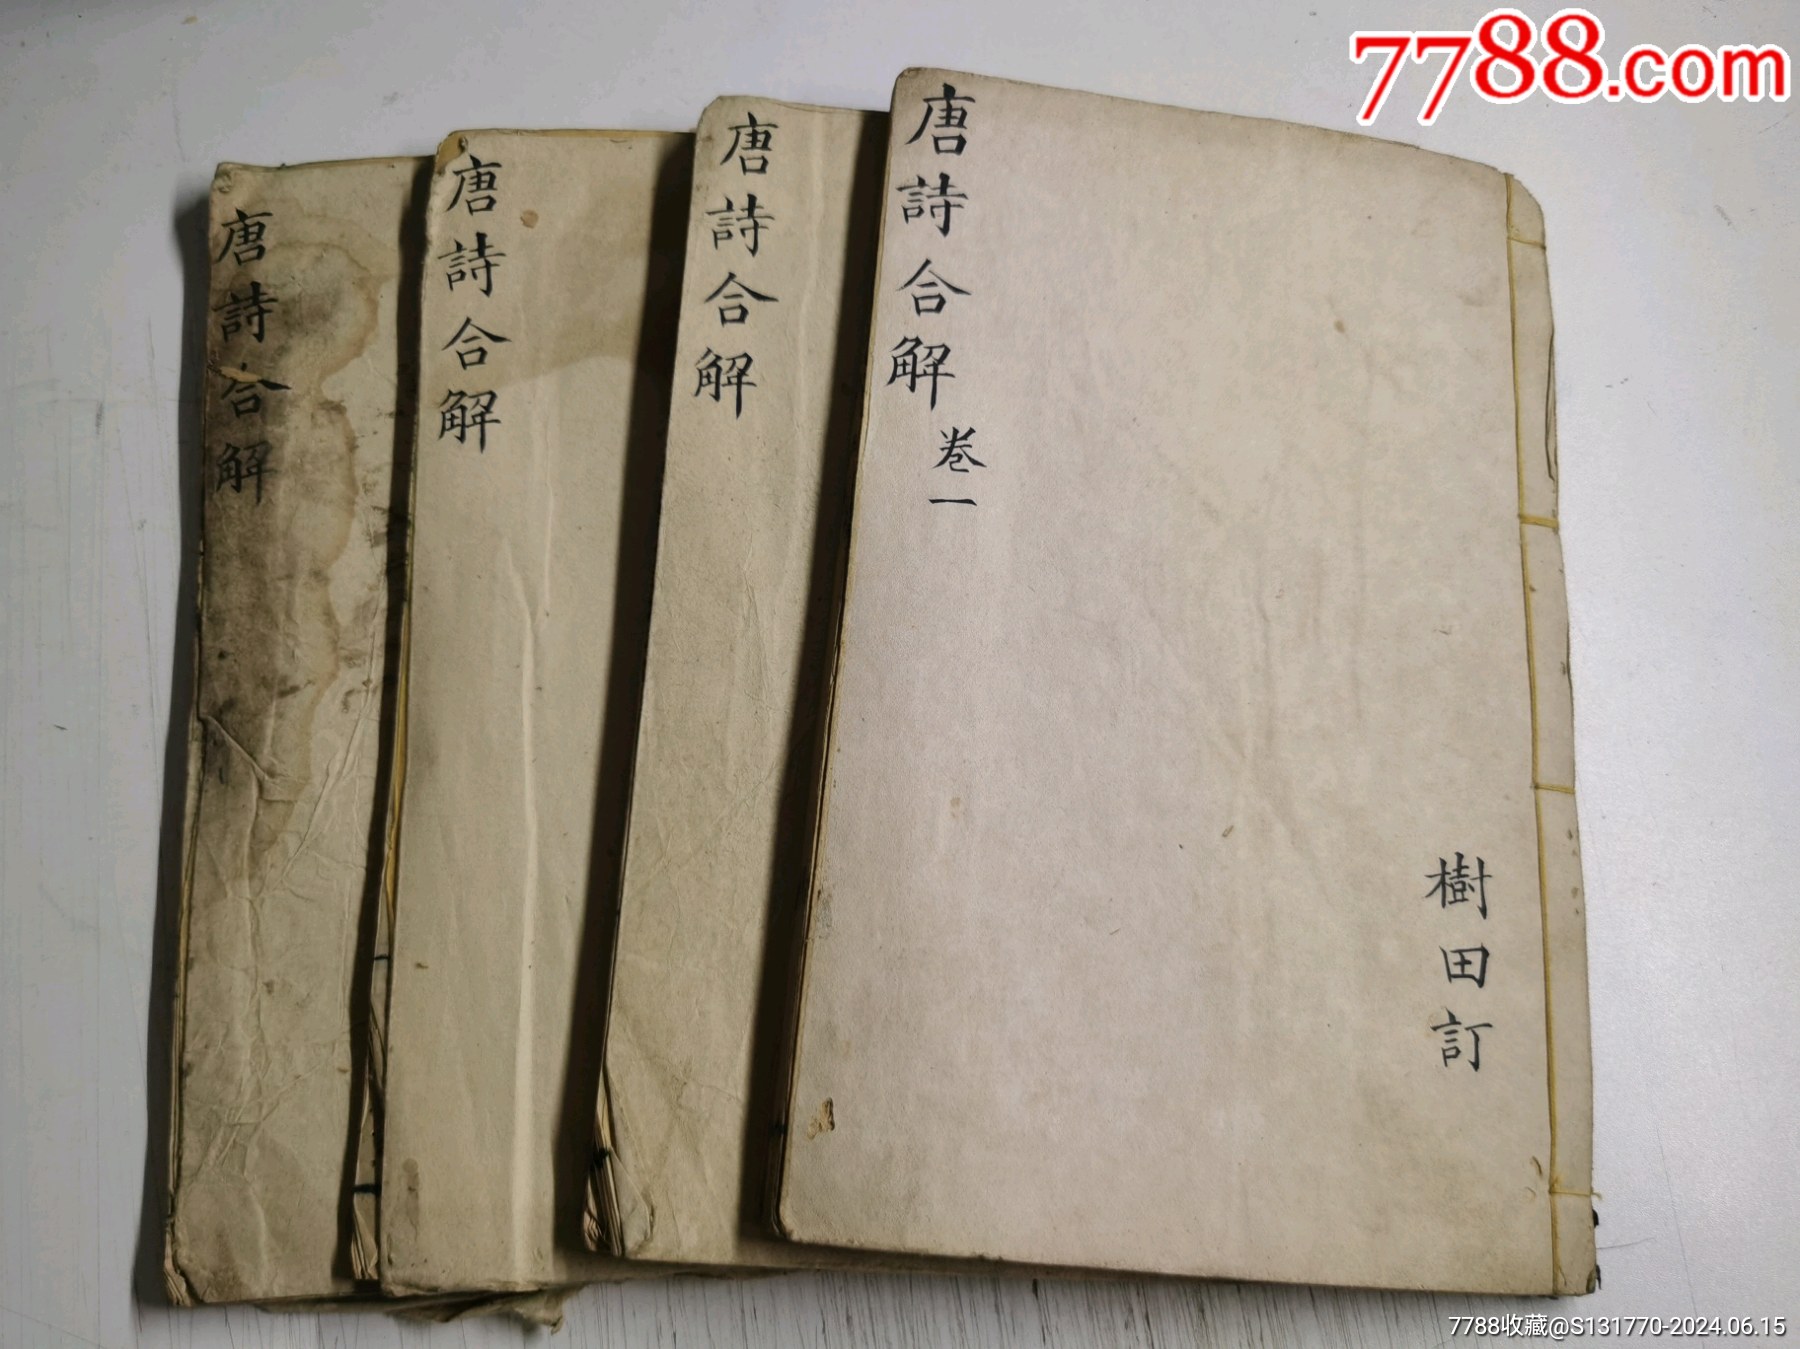 7788.com
唐詩合解
卷一
樹田訂
唐詩合解
唐詩合解
唐詩合解
7788收藏@S131770-2024.06.15